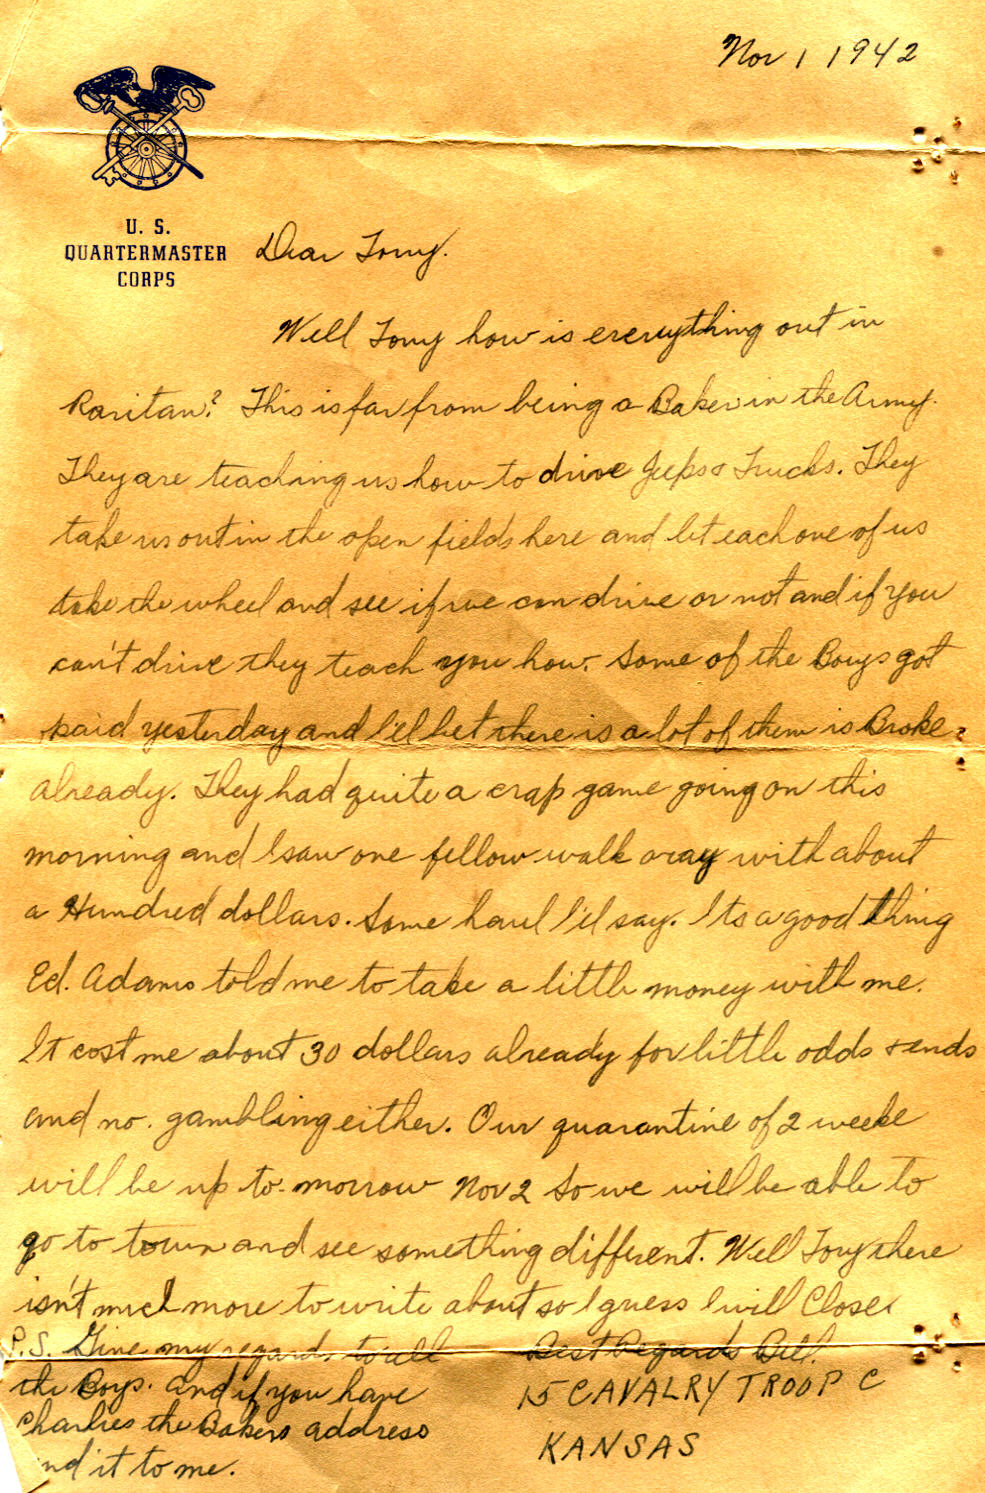 Nov 1 1942
U. S.
QUARTERMASTER
CORPS
Dear Tony.
Well Tony how is everything out in
Raritan? This is far from being a Baker in the Army.
They are teaching us how to drive Jeeps & Trucks. They
take us out in the open fields here and let each one of us
take the wheel and see if we can drive or not and if you
can't drive they teach you how. Some of the Boys got
paid yesterday and I'el bet there is a lot of them is Broke
already. They had quite a crap game going on this
morning and I saw one fellow walk away with about
a Hundred dollars. Some haul I'el say. Its a good thing
Ed. Adams told me to take a little money with me.
It cost me about 30 dollars already for little odds & ends
and no. gambling either. Our quarantine of 2 weeks
will be up to-morrow Nov 2 So we will be able to
go to town and see something different. Well Tony there
isn't much more to write about so I guess I will Close.
Best Regards Bill.
15 CAVALRY TROOP C
KANSAS
P.S. Give my regards to all
the Boys. and if you have
Charlies the Bakers address
nd it to me.